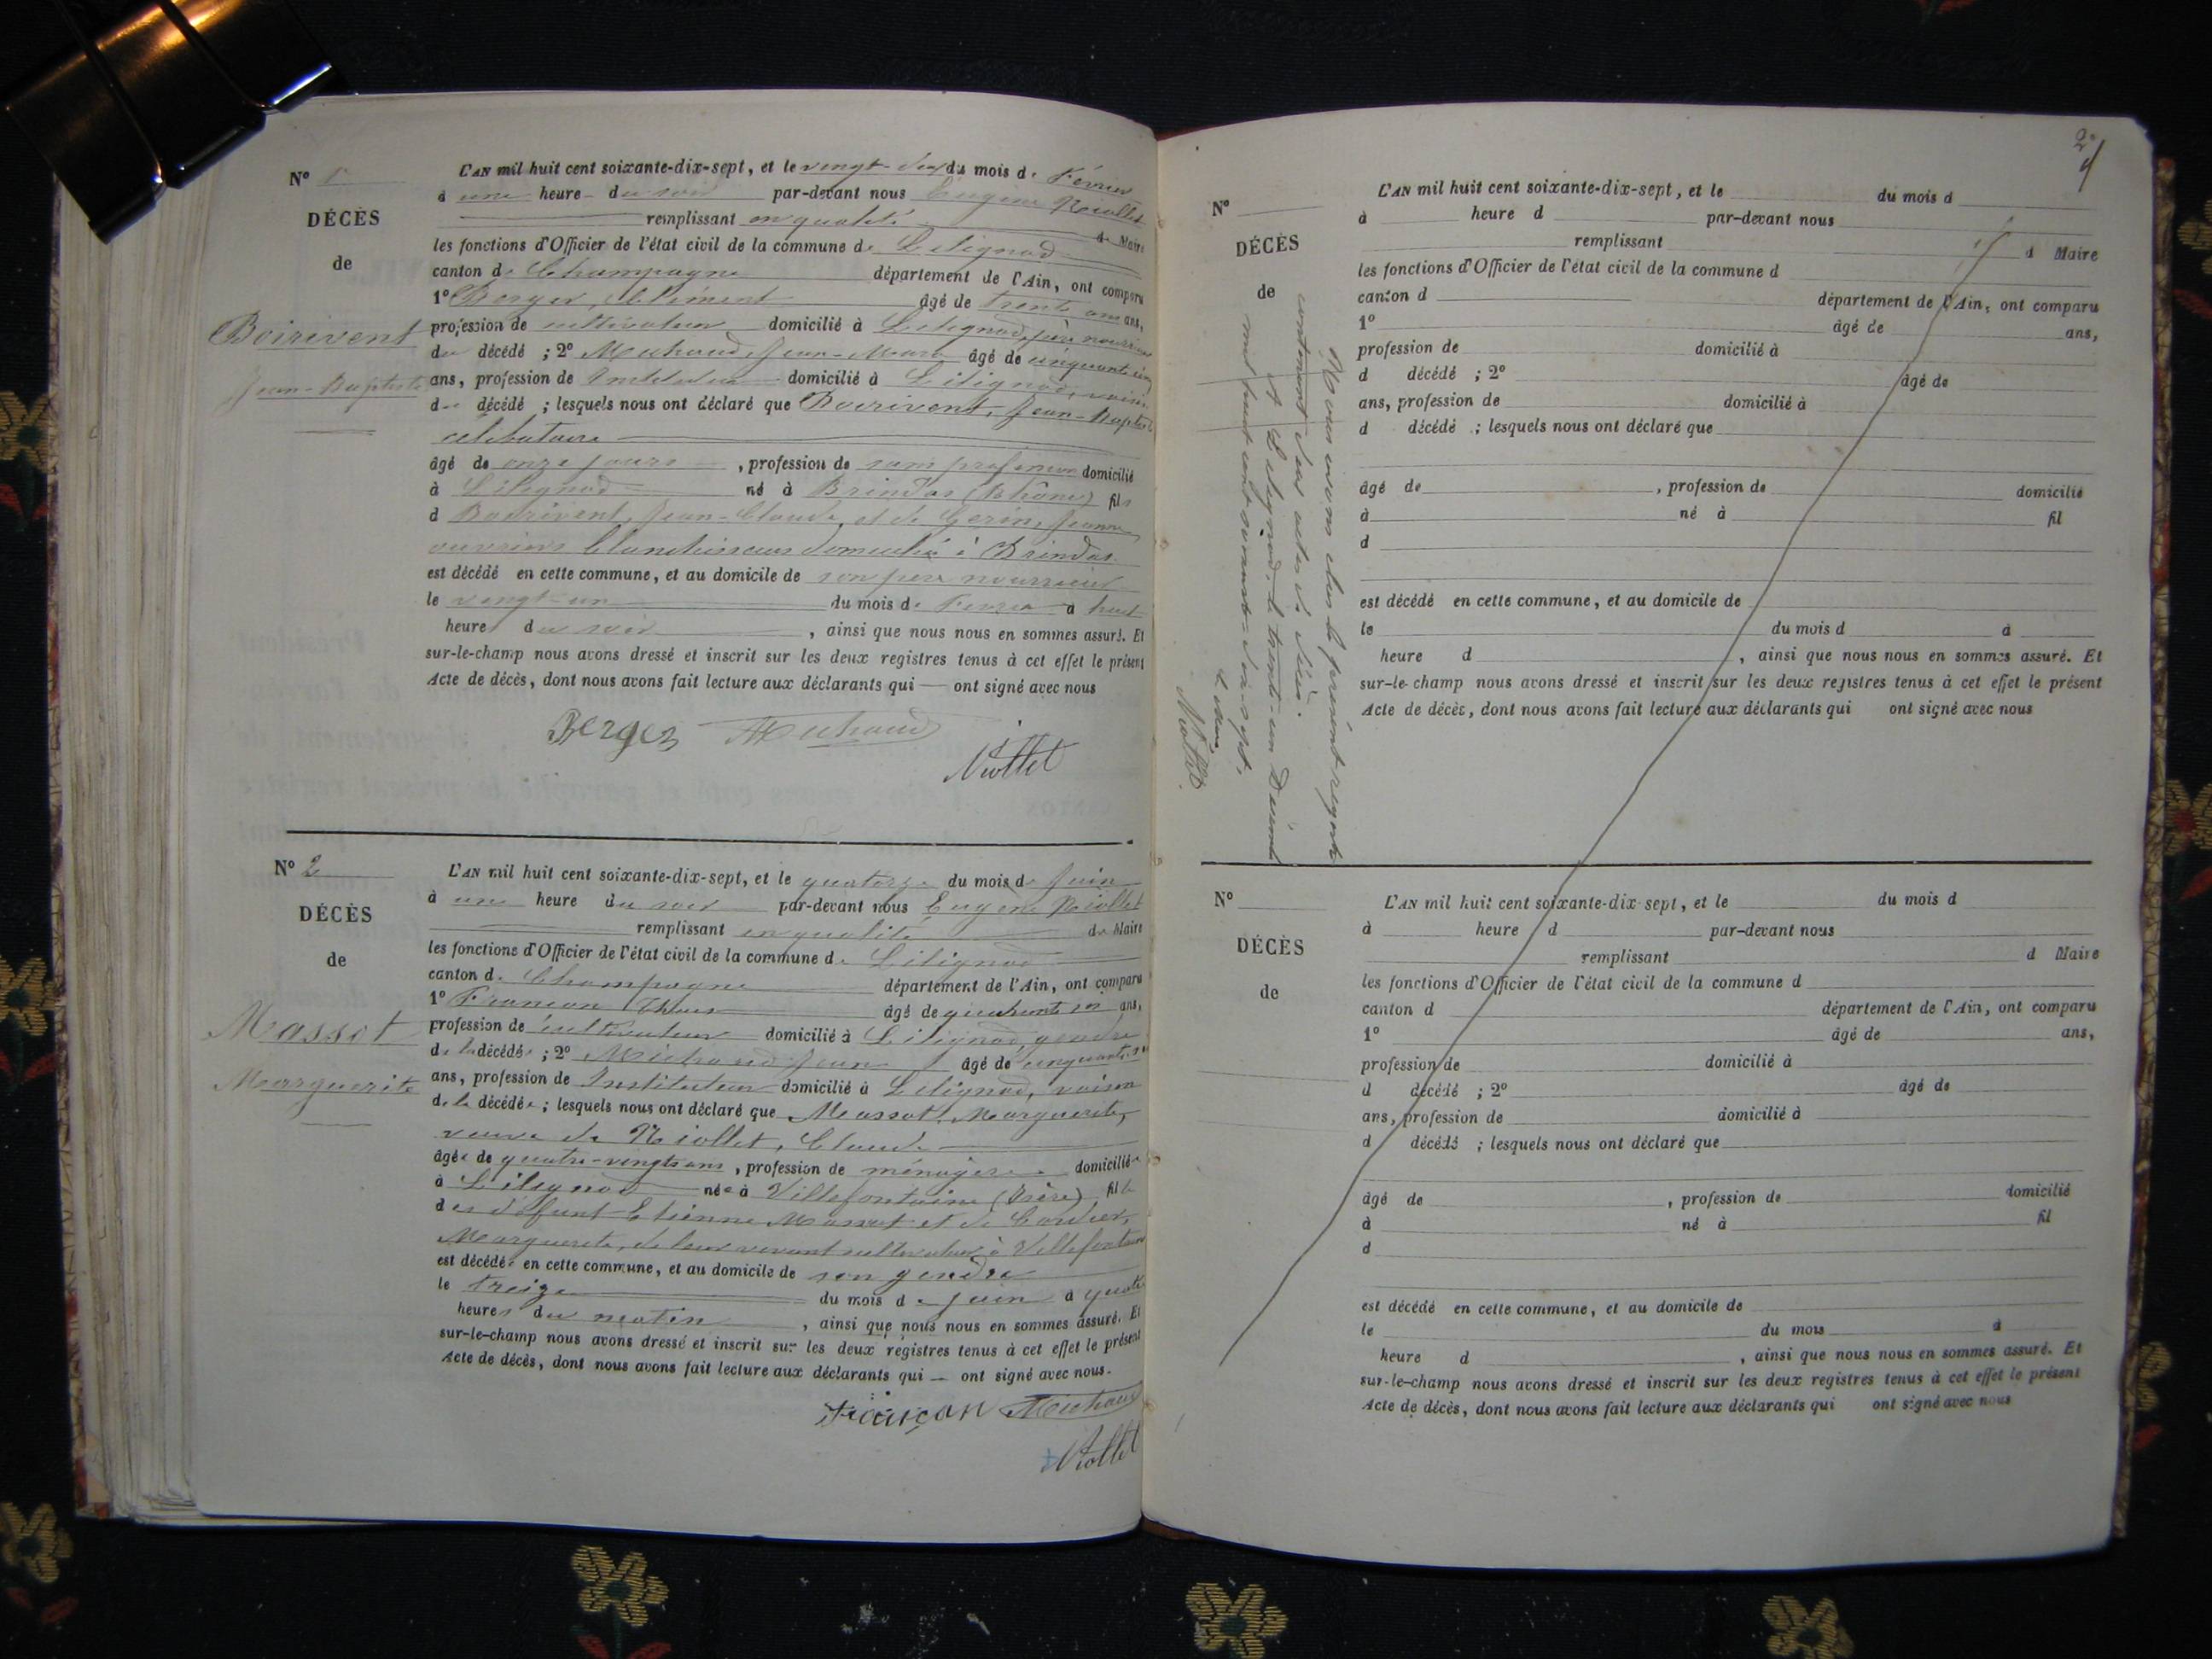 N° 1
DÉCÈS
de
Boirivent
Jean-Baptiste
L'AN mil huit cent soixante-dix-sept, et le vingt-deux du mois de Février
à une heure du soir par-devant nous Eugène Niollet
remplissant en qualité de Maire
les fonctions d'Officier de l'état civil de la commune de Lilignod
canton de Champagne département de l'Ain, ont comparu
1° Berger, Clément âgé de trente ans,
profession de cultivateur domicilié à Lilignod, père nourricier
du décédé ; 2° Michaud, Jean-Marie âgé de cinquante cinq
ans, profession de Instituteur domicilié à Lilignod, voisin
du décédé ; lesquels nous ont déclaré que Boirivent, Jean-Baptiste
celibataire
âgé de onze jours , profession de sans profession domicilié
à Lilignod né à Brindas (Rhône) fils
d Boirivent, Jean-Claude, et de Gerin, Jeanne
ouvriers blanchisseurs domicilié à Brindas
est décédé en cette commune, et au domicile de son père nourricier
le vingt-un du mois de Fevrier à huit
heure du soir , ainsi que nous nous en sommes assuré. Et
sur-le-champ nous avons dressé et inscrit sur les deux registres tenus à cet effet le présent
Acte de décès, dont nous avons fait lecture aux déclarants qui — ont signé avec nous
Berger Michaud
Niollet
N° 2
DÉCÈS
de
Massot
Marguerite
L'AN mil huit cent soixante-dix-sept, et le quatorze du mois de Juin
à une heure du soir par-devant nous Eugène Niollet
remplissant en qualité de Maire
les fonctions d'Officier de l'état civil de la commune de Lilignod
canton de Champagne département de l'Ain, ont comparu
1° Françon âgé de quarante ans,
profession de cultivateur domicilié à Lilignod, gendre
de la décédée ; 2° Michaud Jean âgé de cinquante
ans, profession de Instituteur domicilié à Lilignod, voisin
de la décédée ; lesquels nous ont déclaré que Massot, Marguerite,
veuve de Niollet, Claude
âgée de quatre-vingts ans , profession de ménagère domiciliée
à Lilignod née à Villefontaine (Isère) fille
des défunt Etienne Massot et de Cordier,
Marguerite, de leur vivant cultivateur à Villefontaine
est décédée en cette commune, et au domicile de son gendre
le treize du mois de juin à quatre
heures du matin , ainsi que nous nous en sommes assuré. Et
sur-le-champ nous avons dressé et inscrit sur les deux registres tenus à cet effet le présent
Acte de décès, dont nous avons fait lecture aux déclarants qui — ont signé avec nous.
Françon Michaud
Niollet
2
N°
DÉCÈS
de
Nous avons clos le présent registre
contenant deux actes de décès.
A Lilignod, le trente-un Décembre
mil huit cent soixante-dix-sept.
Le Maire,
Niollet
L'AN mil huit cent soixante-dix-sept, et le du mois d
à heure d par-devant nous
remplissant d Maire
les fonctions d'Officier de l'état civil de la commune d
canton d département de l'Ain, ont comparu
1° âgé de ans,
profession de domicilié à
d décédé ; 2° âgé de
ans, profession de domicilié à
d décédé ; lesquels nous ont déclaré que
âgé de , profession de domicilié
à né à fil
d
est décédé en cette commune, et au domicile de
le du mois d à
heure d , ainsi que nous nous en sommes assuré. Et
sur-le-champ nous avons dressé et inscrit sur les deux registres tenus à cet effet le présent
Acte de décès, dont nous avons fait lecture aux déclarants qui ont signé avec nous
N°
DÉCÈS
de
L'AN mil huit cent soixante-dix-sept, et le du mois d
à heure d par-devant nous
remplissant d Maire
les fonctions d'Officier de l'état civil de la commune d
canton d département de l'Ain, ont comparu
1° âgé de ans,
profession de domicilié à
d décédé ; 2° âgé de
ans, profession de domicilié à
d décédé ; lesquels nous ont déclaré que
âgé de , profession de domicilié
à né à fil
d
est décédé en cette commune, et au domicile de
le du mois à
heure d , ainsi que nous nous en sommes assuré. Et
sur-le-champ nous avons dressé et inscrit sur les deux registres tenus à cet effet le présent
Acte de décès, dont nous avons fait lecture aux déclarants qui ont signé avec nous